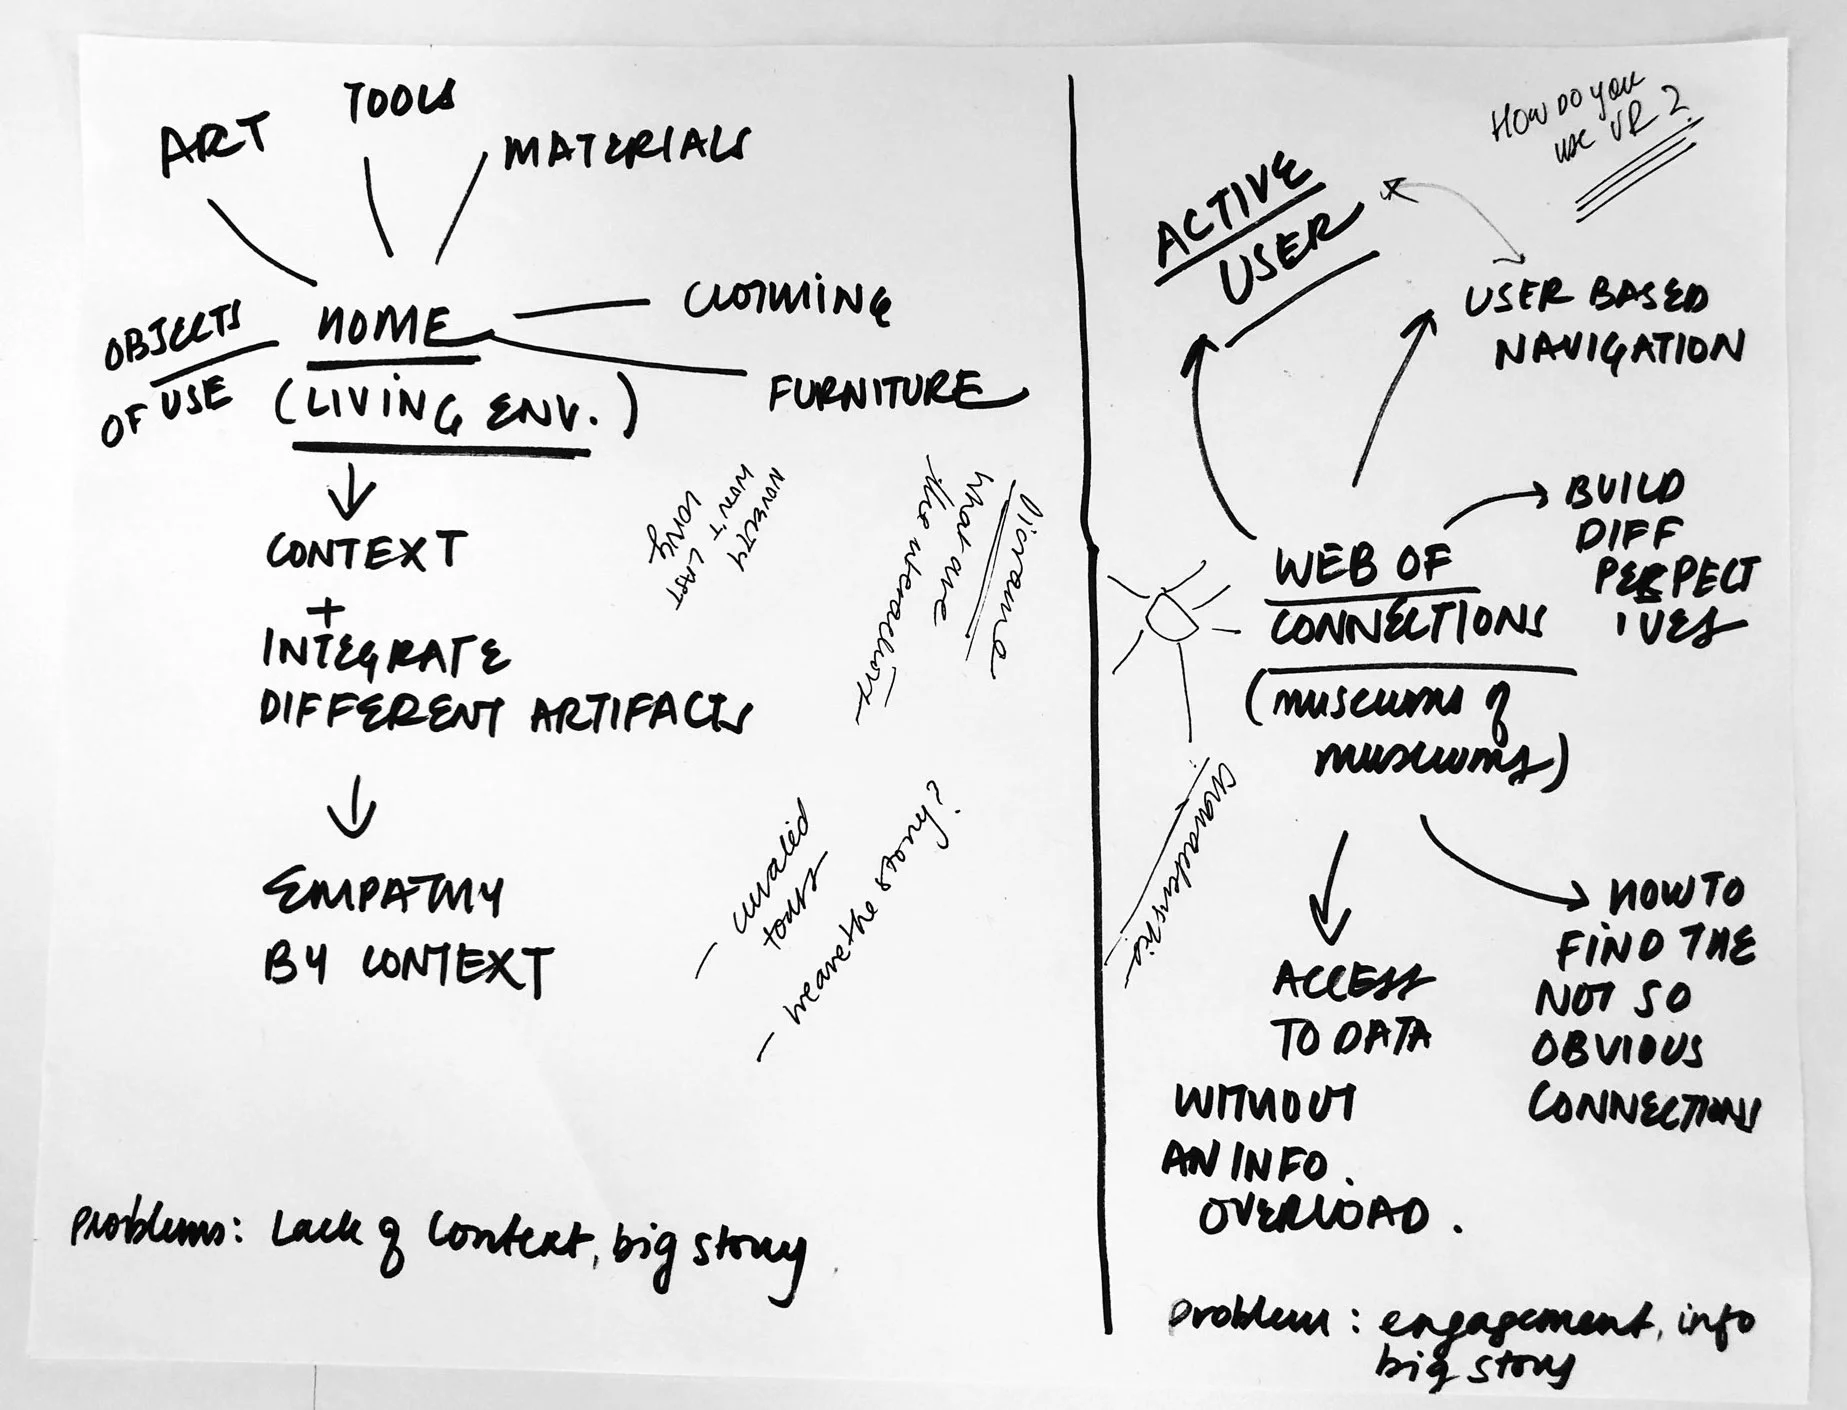 ART
TOOLS
MATERIALS
OBJECTS
OF USE
HOME
(LIVING ENV.)
CLOTHING
FURNITURE
CONTEXT
+
INTEGRATE
DIFFERENT ARTIFACTS
EMPATHY
BY CONTEXT
NOVELTY
WON'T LAST
LONG
what are
the interactions
- curated
tours
- weave the story?
problems: Lack of context, big story
HOW DO YOU
use VR?
ACTIVE
USER
USER BASED
NAVIGATION
WEB OF
CONNECTIONS
(museums of
museums)
BUILD
DIFF
PERSPECT
IVES
characteristic
ACCESS
TO DATA
WITHOUT
AN INFO.
OVERLOAD.
HOW TO
FIND THE
NOT SO
OBVIOUS
CONNECTIONS
problem: engagement, info
big story